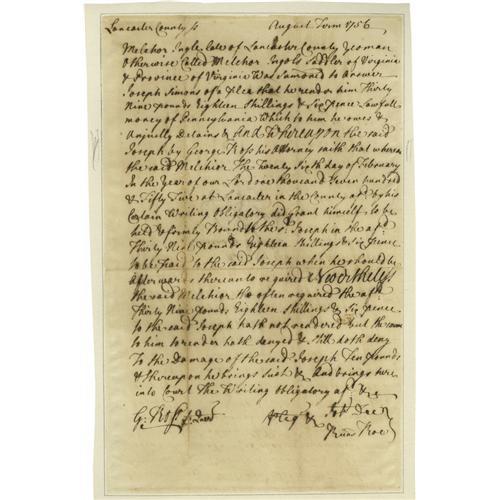 Lancaster County ss August Term 1756
Melchor Ingle late of Lancaster County yeoman
Otherwise Called Melchor Ingols Sadler of Virginia
& Province of Virginia Was Sumoned to Answer
Joseph Simons of a Plea that he render him Thirty
Nine pounds Eighteen Shillings & Six pence Lawfull
money of Pennsylvania Which to him he owes &
Unjustly Detains & And Whereupon the said
Joseph by George Ross his Attorney saith that whereas
the said Melchior The Twenty Sixth day of February
In the Year of our Lord one thousand Seven hundred
& Fifty Two at Lancaster in the County afd by his
Certain Writing Obligatory did grant himself to be
held & firmly bound to the sd Joseph in the afd
Thirty Nine pounds Eighteen Shillings & Six pence
to be paid to the said Joseph when he should be
Afterwards thereunto required & Nevertheless
the said Melchior tho often required the afd
Thirty Nine pounds Eighteen Shillings & Six pence
to the said Joseph hath not rendered but the same
to him to render hath denyed & still doth deny
To the Damage of the said Joseph Ten pounds
& thereupon he brings Suit & And brings here
into Court The Writing Obligatory afd &c
G: Ross Pleg &c Jno Doe
Richd Roe